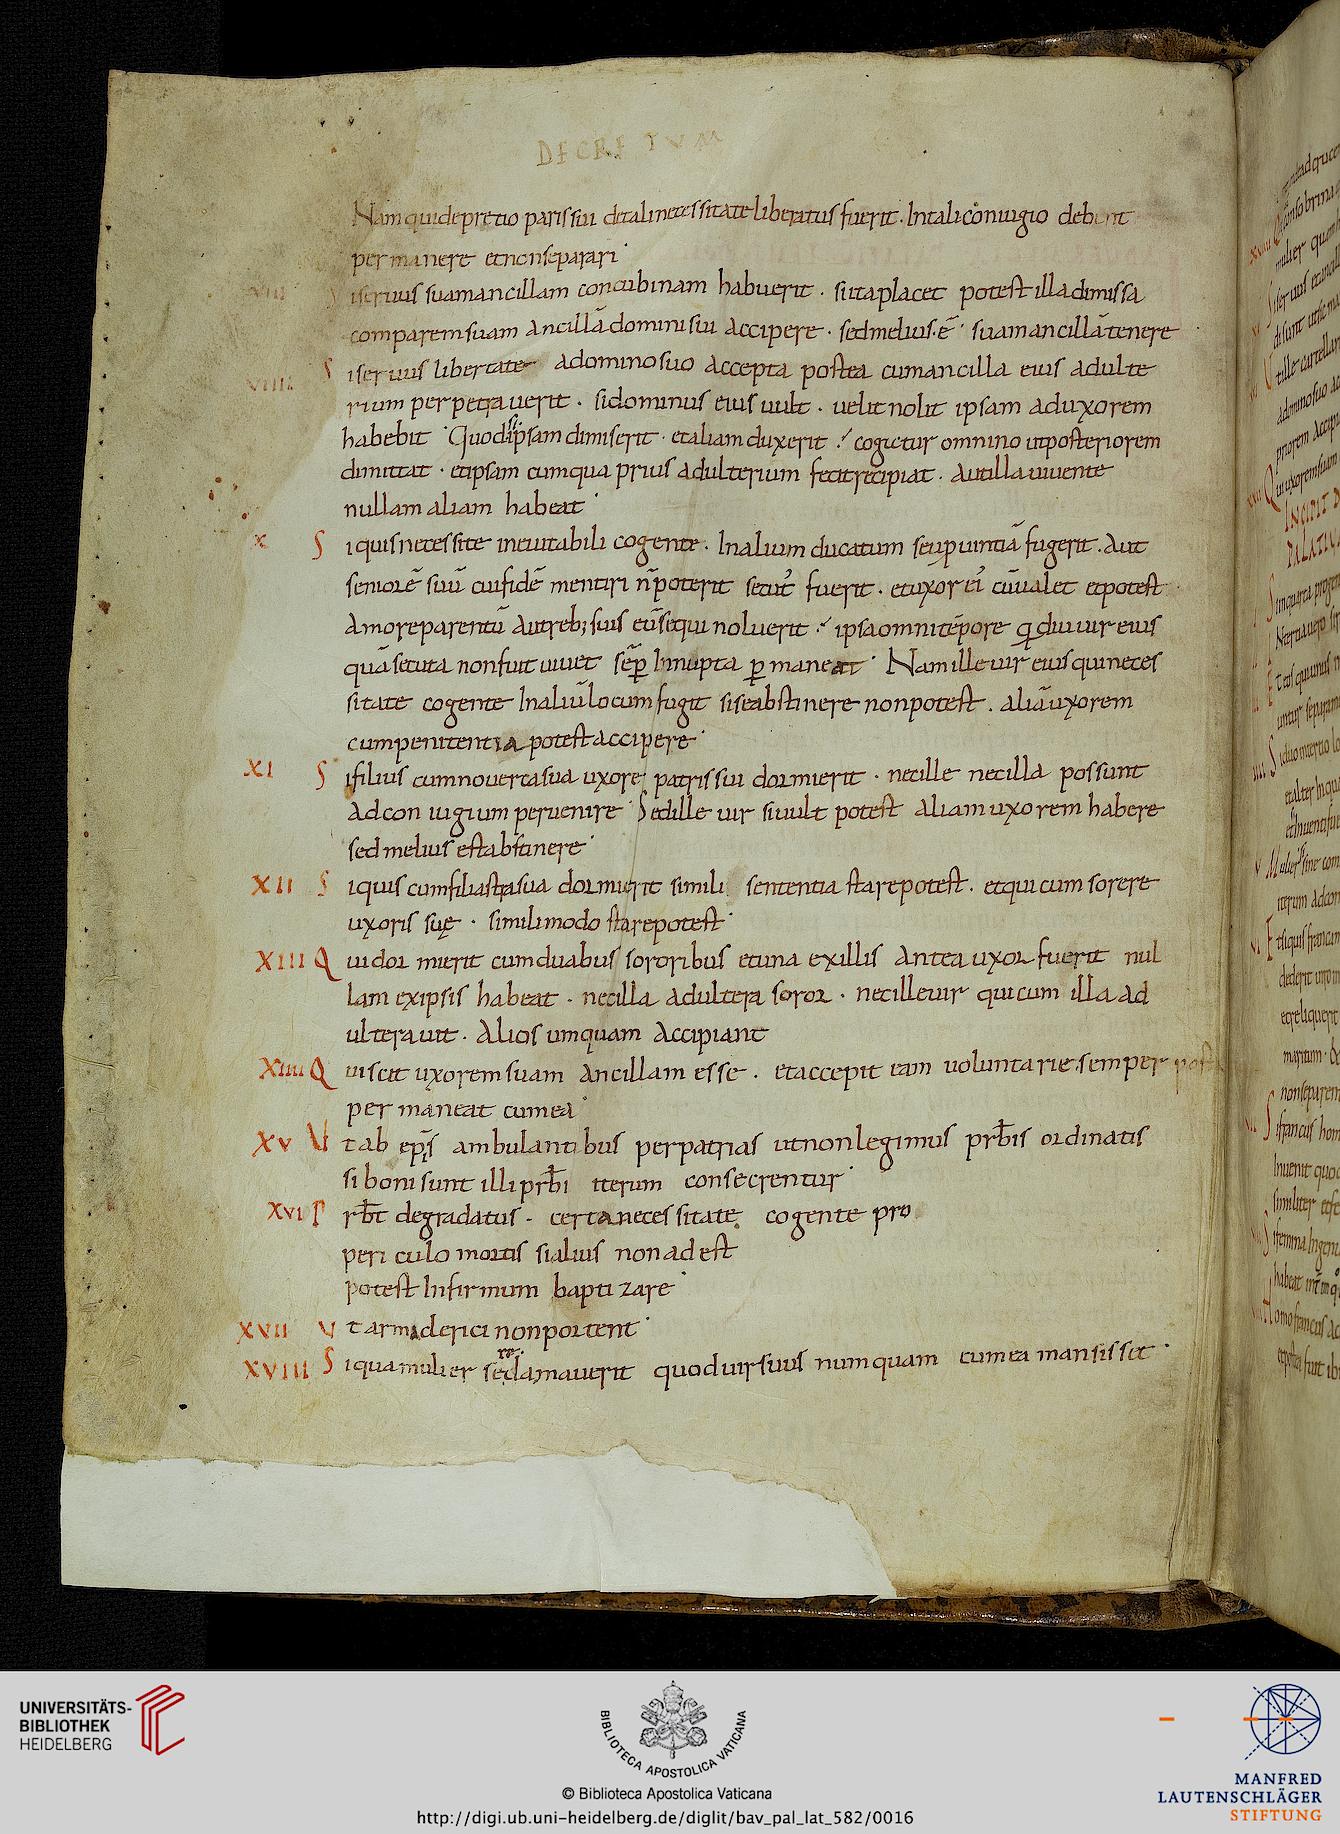 DECRETUM
Nam qui de pretio paris sui de tali necessitate liberatus fuerit. In tali coniugio debent
permanere et non separari
VIII Si seruus suam ancillam concubinam habuerit. si ita placet potest illa dimissa
comparem suam ancillā domini sui accipere. sed melius. ē suam ancillā tenere
VIIII Si seruus libertate a domino suo accepta postea cum ancilla eius adulte
rium perpetrauerit. si dominus eius uult. uelit nolit ipsam ad uxorem
habebit Quod si ipsam dimiserit. et aliam duxerit cogictur omnino ut posteriorem
dimittat. et ipsam cum qua prius adulterium fecit recipiat. aut illa uiuente
nullam aliam habeat
X Si quis necessite ineuitabili cogente. In alium ducatum seu puintiā fugerit. Aut
seniorē suū cui fidē mentiri n̄ poterit secut' fuerit. et uxor ei' cū ualet et potest
amore parentū aut reb; suis eū sequi noluerit ipsa omni tēpore qdiu uir eius
quā secuta non fuit uiuet sēp Innupta pmaneat Nam ille uir eius qui neces
sitate cogente In aliū locum fugit si se abstinere non potest. aliā uxorem
cum penitentia potest accipere
XI Si filius cum nouerca sua uxore patris sui dormierit. nec ille nec illa possunt
ad coniugium peruenire Sed ille uir si uult potest aliam uxorem habere
sed melius est abstinere
XII Si quis cum filiastra sua dormierit simili sententia stare potest. et qui cum sorere
uxoris suę. simili modo stare potest
XIII Qui dormierit cum duabus sororibus et una ex illis antea uxor fuerit nul
lam ex ipsis habeat. nec illa adultera soror. nec ille uir qui cum illa ad
ulterauit. alios umquam accipiant
XIIII Qui scit uxorem suam ancillam esse. et accepit eam uoluntarie. semper post
permaneat cum ea
XV Ut ab ep̄is ambulantibus per patrias ut non legimus prb̄is ordinatis
si boni sunt illi prb̄i iterum consecrentur
XVI Prb̄t degradatus. certa necessitate cogente pro
periculo mortis si alius non adest
potest Infirmum baptizare
XVII Ut arma clerici non portent
re.
XVIII Si qua mulier se clamauerit quod uir suus numquam cum ea mansisset.
UNIVERSITÄTS-
BIBLIOTHEK
HEIDELBERG
BIBLIOTECA APOSTOLICA VATICANA
© Biblioteca Apostolica Vaticana
http://digi.ub.uni-heidelberg.de/diglit/bav_pal_lat_582/0016
MANFRED
LAUTENSCHLÄGER
STIFTUNG